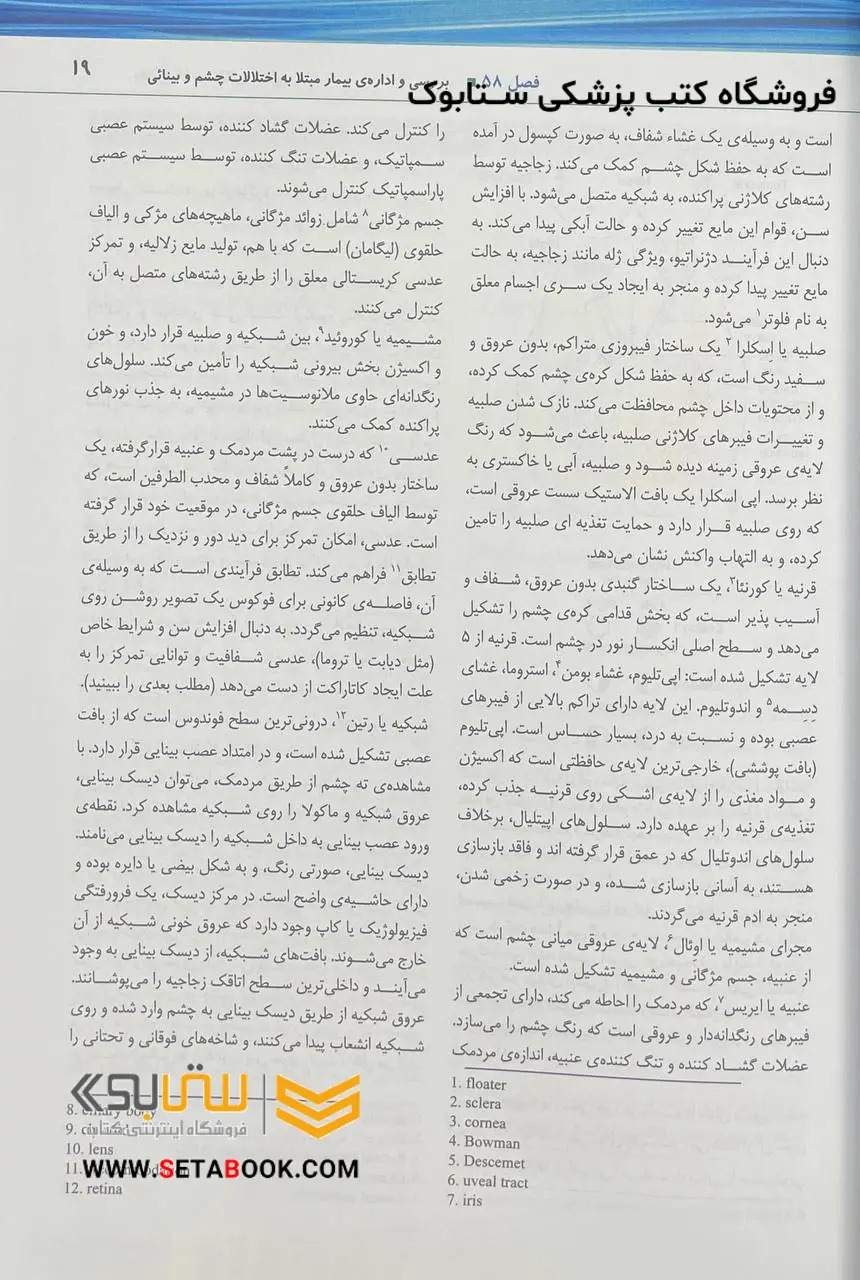 فروشگاه کتب پزشکی ستابوک
فصل ۵۸ بررسی و اداره‌ی بیمار مبتلا به اختلالات چشم و بینائی
۱۹
است و به وسیله‌ی یک غشاء شفاف، به صورت کپسول در آمده
است که به حفظ شکل چشم کمک می‌کند. زجاجیه توسط
رشته‌های کلاژنی پراکنده، به شبکیه متصل می‌شود. با افزایش
سن، قوام این مایع تغییر کرده و حالت آبکی پیدا می‌کند. به
دنبال این فرآیند دژنراتیو، ویژگی ژله مانند زجاجیه، به حالت
مایع تغییر پیدا کرده و منجر به ایجاد یک سری اجسام معلق
به نام فلوتر۱ می‌شود.
صلبیه یا اِسکلرا ۲ یک ساختار فیبروزی متراکم، بدون عروق و
سفید رنگ است، که به حفظ شکل کره‌ی چشم کمک کرده،
و از محتویات داخل چشم محافظت می‌کند. نازک شدن صلبیه
و تغییرات فیبرهای کلاژنی صلبیه، باعث می‌شود که رنگ
لایه‌ی عروقی زمینه دیده شود و صلبیه، آبی یا خاکستری به
نظر برسد. اپی اسکلرا یک بافت الاستیک سست عروقی است،
که روی صلبیه قرار دارد و حمایت تغذیه ای صلبیه را تامین
کرده، و به التهاب واکنش نشان می‌دهد.
قرنیه یا کورنئا۳، یک ساختار گنبدی بدون عروق، شفاف و
آسیب پذیر است، که بخش قدامی کره‌ی چشم را تشکیل
می‌دهد و سطح اصلی انکسار نور در چشم است. قرنیه از ۵
لایه تشکیل شده است: اپی‌تلیوم، غشاء بومن۴، استروما، غشای
دِسِمه۵ و اندوتلیوم. این لایه دارای تراکم بالایی از فیبرهای
عصبی بوده و نسبت به درد، بسیار حساس است. اپی‌تلیوم
(بافت پوششی)، خارجی‌ترین لایه‌ی حافظتی است که اکسیژن
و مواد مغذی را از لایه‌ی اشکی روی قرنیه جذب کرده،
تغذیه‌ی قرنیه را بر عهده دارد. سلول‌های اپیتلیال، برخلاف
سلول‌های اندوتلیال که در عمق قرار گرفته اند و فاقد بازسازی
هستند، به آسانی بازسازی شده، و در صورت زخمی شدن،
منجر به ادم قرنیه می‌گردند.
مجرای مشیمیه یا اوئال۶، لایه‌ی عروقی میانی چشم است که
از عنبیه، جسم مژگانی و مشیمیه تشکیل شده است.
عنبیه یا ایریس۷، که مردمک را احاطه می‌کند، دارای تجمعی از
فیبرهای رنگدانه‌دار و عروقی است که رنگ چشم را می‌سازد.
عضلات گشاد کننده و تنگ کننده‌ی عنبیه، اندازه‌ی مردمک
1. floater
2. sclera
3. cornea
4. Bowman
5. Descemet
6. uveal tract
7. iris
را کنترل می‌کند. عضلات گشاد کننده، توسط سیستم عصبی
سمپاتیک، و عضلات تنگ کننده، توسط سیستم عصبی
پاراسمپاتیک کنترل می‌شوند.
جسم مژگانی۸ شامل زوائد مژگانی، ماهیچه‌های مژکی و الیاف
حلقوی (لیگامان) است که با هم، تولید مایع زلالیه، و تمرکز
عدسی کریستالی معلق را از طریق رشته‌های متصل به آن،
کنترل می‌کنند.
مشیمیه یا کوروئید۹، بین شبکیه و صلبیه قرار دارد، و خون
و اکسیژن بخش بیرونی شبکیه را تأمین می‌کند. سلول‌های
رنگدانه‌ای حاوی ملانوسیت‌ها در مشیمیه، به جذب نورهای
پراکنده کمک می‌کنند.
عدسی۱۰ که درست در پشت مردمک و عنبیه قرارگرفته، یک
ساختار بدون عروق و کاملاً شفاف و محدب الطرفین است، که
توسط الیاف حلقوی جسم مژگانی، در موقعیت خود قرار گرفته
است. عدسی، امکان تمرکز برای دید دور و نزدیک را از طریق
تطابق۱۱ فراهم می‌کند. تطابق فرآیندی است که به وسیله‌ی
آن، فاصله‌ی کانونی برای فوکوس یک تصویر روشن روی
شبکیه، تنظیم می‌گردد. به دنبال افزایش سن و شرایط خاص
(مثل دیابت یا تروما)، عدسی شفافیت و توانایی تمرکز را به
علت ایجاد کاتاراکت از دست می‌دهد (مطلب بعدی را ببینید).
شبکیه یا رتین۱۲، درونی‌ترین سطح فوندوس است که از بافت
عصبی تشکیل شده است، و در امتداد عصب بینایی قرار دارد. با
مشاهده‌ی ته چشم از طریق مردمک، می‌توان دیسک بینایی،
عروق شبکیه و ماکولا را روی شبکیه مشاهده کرد. نقطه‌ی
ورود عصب بینایی به داخل شبکیه را دیسک بینایی می‌نامند.
دیسک بینایی، صورتی رنگ، و به شکل بیضی یا دایره بوده و
دارای حاشیه‌ی واضح است. در مرکز دیسک، یک فرورفتگی
فیزیولوژیک یا کاپ وجود دارد که عروق خونی شبکیه از آن
خارج می‌شوند. بافت‌های شبکیه، از دیسک بینایی به وجود
می‌آیند و داخلی‌ترین سطح اتاقک زجاجیه را می‌پوشانند.
عروق شبکیه از طریق دیسک بینایی به چشم وارد شده و روی
شبکیه انشعاب پیدا می‌کنند، و شاخه‌های فوقانی و تحتانی را
8. ciliary body
9.
10. lens
11.
12. retina
ستابوک
فروشگاه اینترنتی کتاب
WWW.SETABOOK.COM